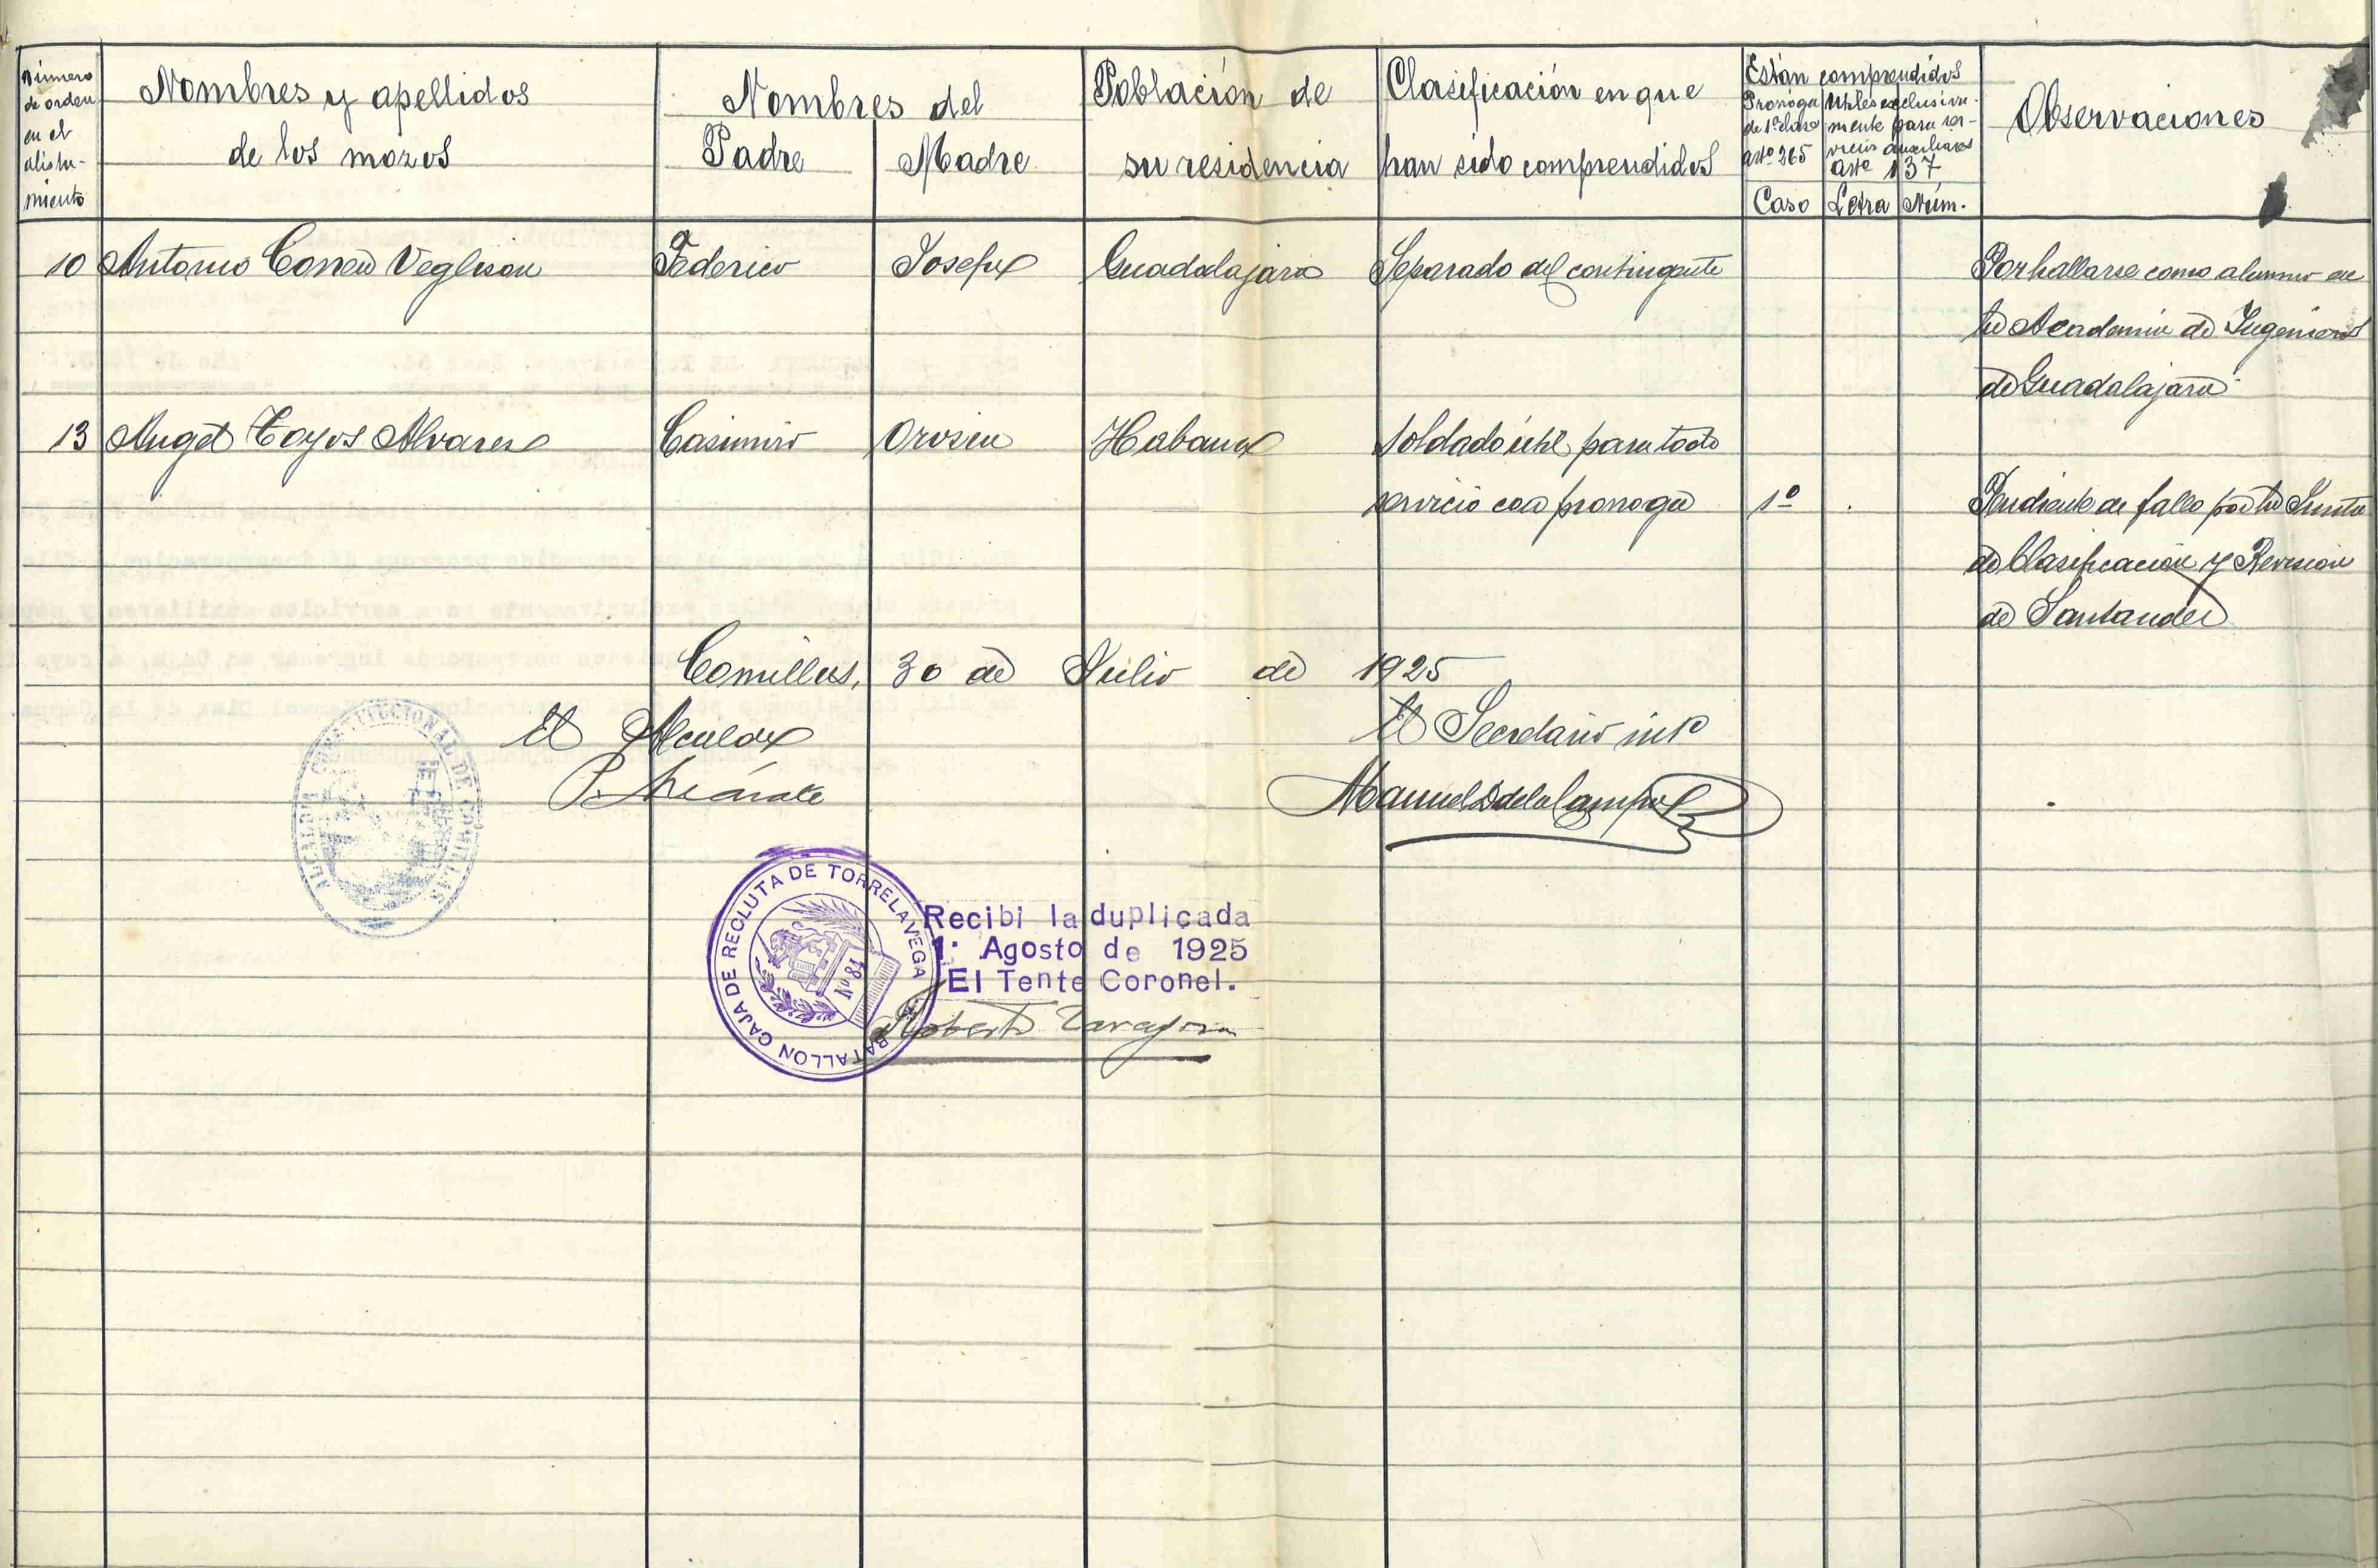 Número de orden en el alista-miento
Nombres y apellidos
de los mozos
Nombres del
Padre
Madre
Población de
su residencia
Clasificación en que
han sido comprendidos
Están comprendidos
Prorroga de 1ª clase artº 265
Utiles exclusiva-mente para ser-vicios auxiliares artº 137
Caso
Letra
Núm.
Observaciones
10 Antonio Correa Veglison Federico Josefa Guadalajara Separado del contingente Por hallarse como alumno en
la Academia de Ingenieros
de Guadalajara
13 Angel Toyos Alvarez Casimiro Orosia Habana Soldado útil para todo
servicio con prorroga 1º Pendiente de fallo por la Junta
de Clasificación y Revision
de Santander
Comillas, 30 de Julio de 1925
El Alcalde
El Secretario intº
Manuel D de la Campa
ALCALDIA CONSTITUCIONAL DE COMILLAS
BATALLON CAJA DE RECLUTA DE TORRELAVEGA
Nº 81
Recibi la duplicada
1º Agosto de 1925
El Tente Coronel.
Roberto Zaragoza